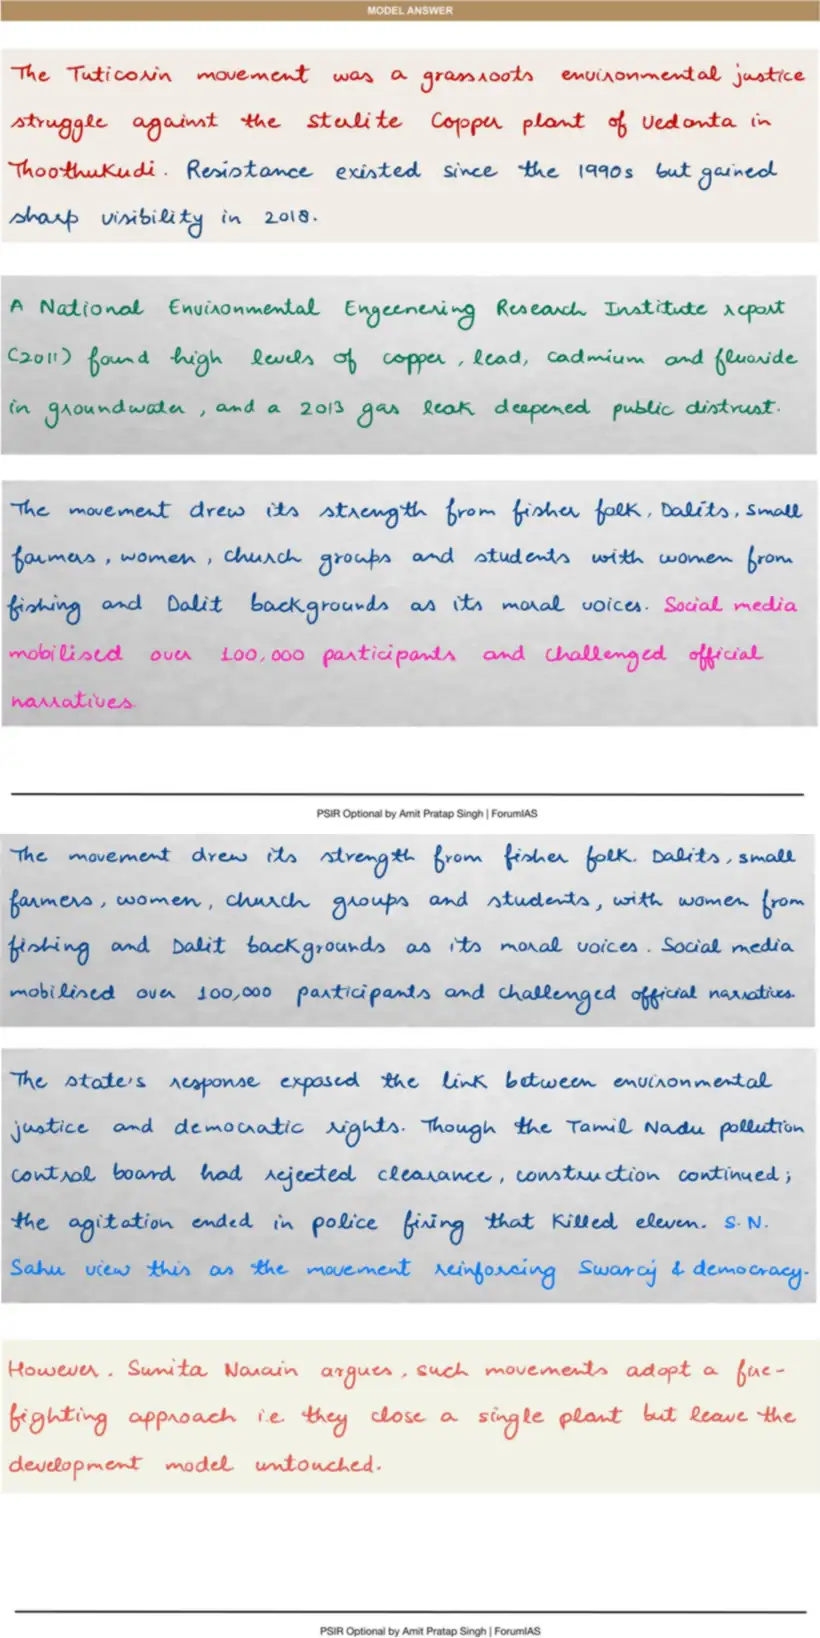 MODEL ANSWER
The Tuticorin movement was a grassroots environmental justice
struggle against the Sterlite Copper plant of Vedanta in
Thoothukudi. Resistance existed since the 1990s but gained
sharp visibility in 2018.
A National Environmental Engeenering Research Institute report
(2011) found high levels of copper, lead, cadmium and fluoride
in groundwater, and a 2013 gas leak deepened public distrust.
The movement drew its strength from fisher folk, Dalits, small
farmers, women, church groups and students with women from
fishing and Dalit backgrounds as its moral voices. Social media
mobilised over 100,000 participants and challenged official
narratives.
PSIR Optional by Amit Pratap Singh | ForumIAS
The movement drew its strength from fisher folk. Dalits, small
farmers, women, church groups and students, with women from
fishing and Dalit backgrounds as its moral voices. Social media
mobilised over 100,000 participants and challenged official narratives.
The state's response exposed the link between environmental
justice and democratic rights. Though the Tamil Nadu pollution
control board had rejected clearance, construction continued;
the agitation ended in police firing that killed eleven. S.N.
Sahu view this as the movement reinforcing Swaraj & democracy.
However. Sunita Narain argues, such movements adopt a fire-
fighting approach i.e. they close a single plant but leave the
development model untouched.
PSIR Optional by Amit Pratap Singh | ForumIAS